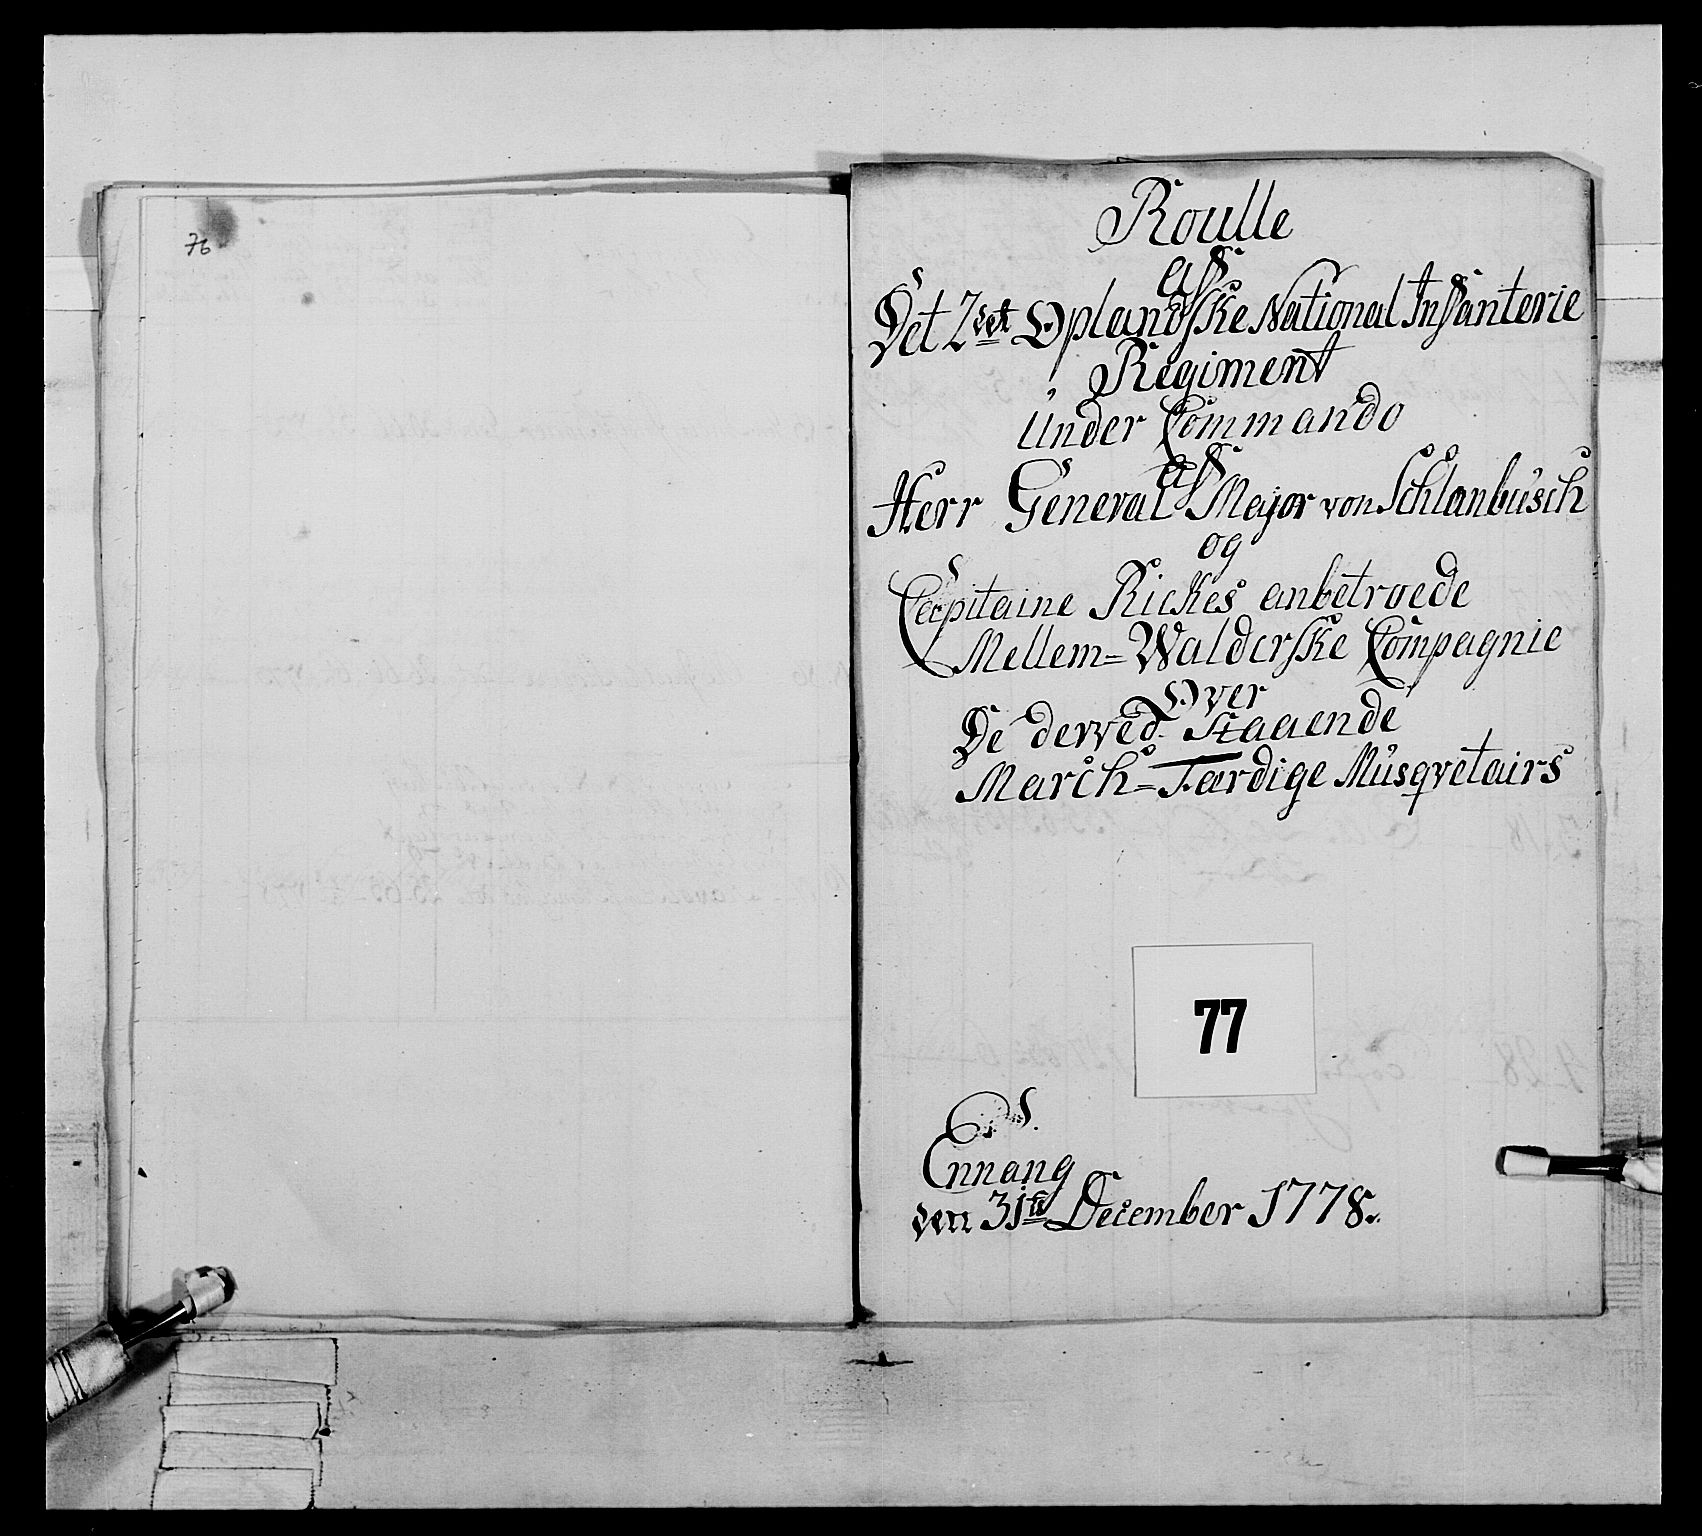 76
Roulle
af
Det 2det Oplandske National Infanterie
Regiment
Under Commando
af
Herr General Major von Schlanbusch
og
Capitaine Rickes anbetroede
Mellem=Walderske Compagnie
Over
De derved Staaende
March=Færdige Musqvetairs
77
Ennang
den 31te December 1778.